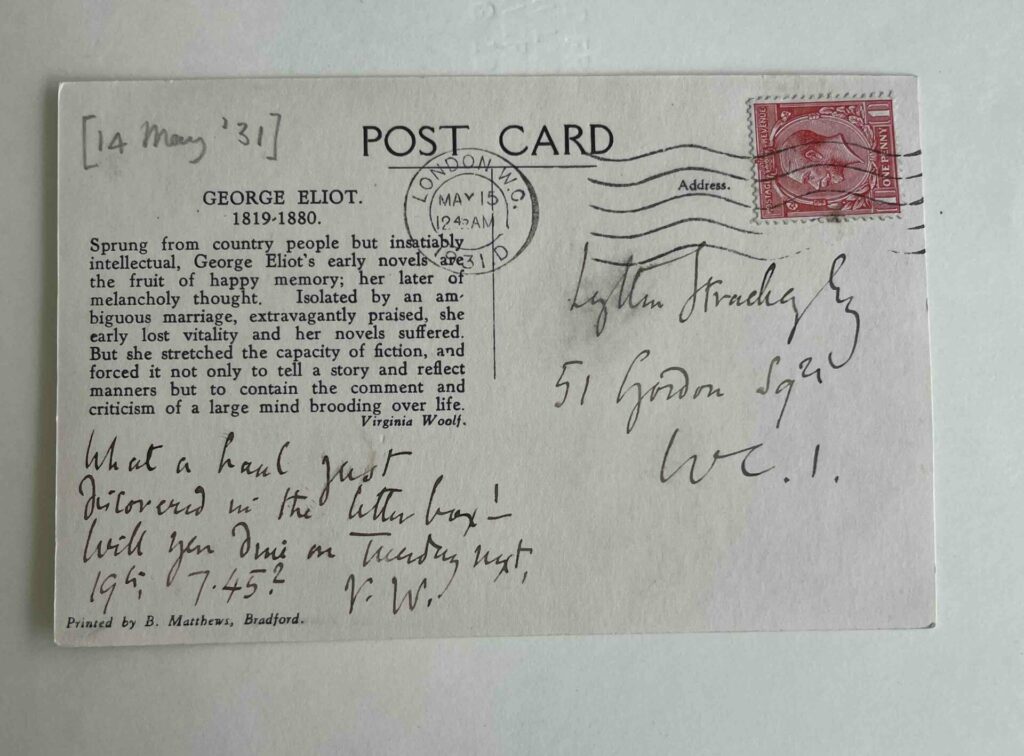 [14 May '31]
POST CARD
GEORGE ELIOT.
1819-1880.
Sprung from country people but insatiably
intellectual, George Eliot's early novels are
the fruit of happy memory; her later of
melancholy thought. Isolated by an am-
biguous marriage, extravagantly praised, she
early lost vitality and her novels suffered.
But she stretched the capacity of fiction, and
forced it not only to tell a story and reflect
manners but to contain the comment and
criticism of a large mind brooding over life.
Virginia Woolf.
What a haul just
discovered in the letter box!—
Will you dine on Tuesday next,
19th, 7.45?
V. W.
Printed by B. Matthews, Bradford.
LONDON. W.C.
MAY 15
12 45 AM
1931 D
Address.
POSTAGE REVENUE
ONE PENNY
Lytton Strachey Esq
51 Gordon Sqre
WC. 1.